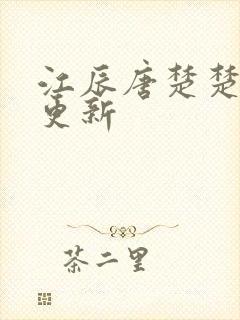 江辰唐楚楚
更新
茶二里